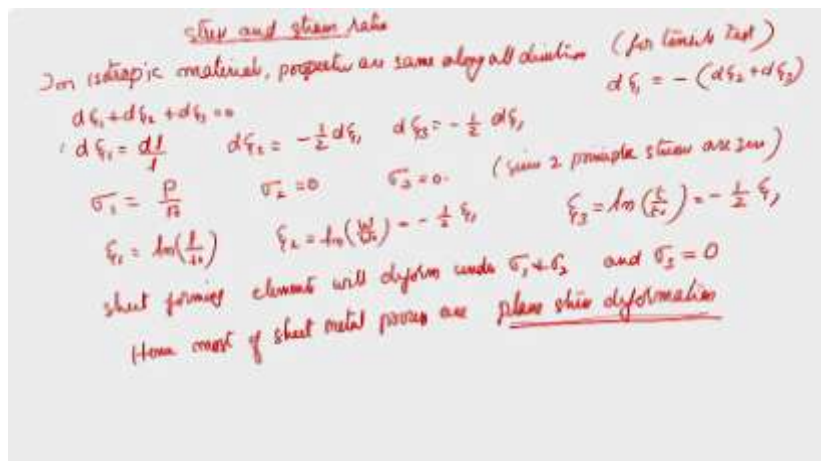 stress and strain ratio
For isotropic material, properties are same along all direction (for tensile test)
dε₁+dε₂+dε₃=0 dε₁ = -(dε₂+dε₃)
dε₁ = dl/l dε₂ = -1/2 dε₁ dε₃ = -1/2 dε₁
σ₁ = P/A σ₂=0 σ₃=0. (since 2 principle stress are zero)
ε₁ = ln(l/l₀) ε₂ = ln(w/w₀) = -1/2 ε₁ ε₃ = ln(t/t₀) = -1/2 ε₁
sheet forming element will deform under σ₁ & σ₂ and σ₃ = 0
Hence most of sheet metal process are plane stress deformation